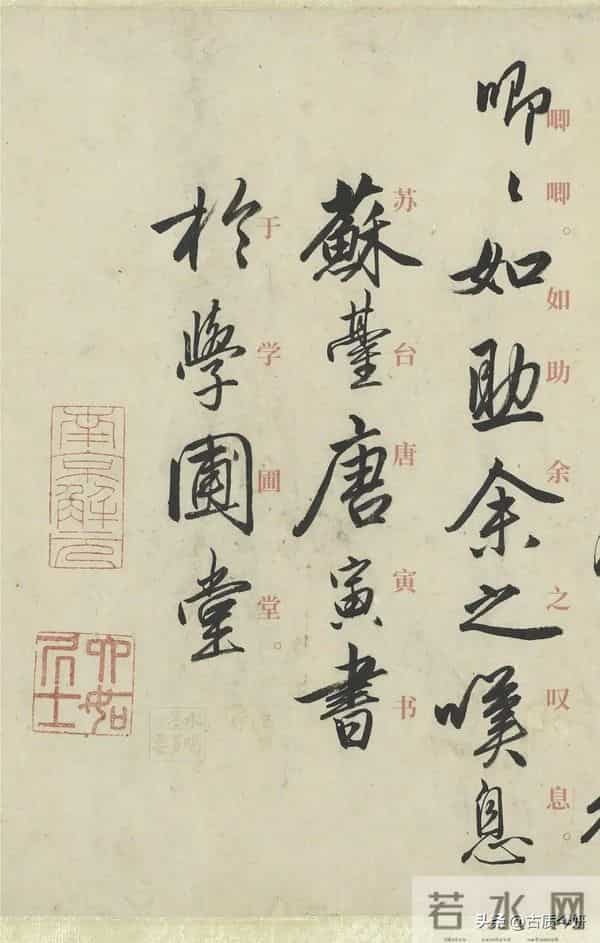 唧〻如助余之嘆息
唧唧。如助余之叹息。
蘇臺唐寅書
苏台唐寅书
於學圃堂
于学圃堂。
南京解元
六如居士
若水网
头条 @古质今妍